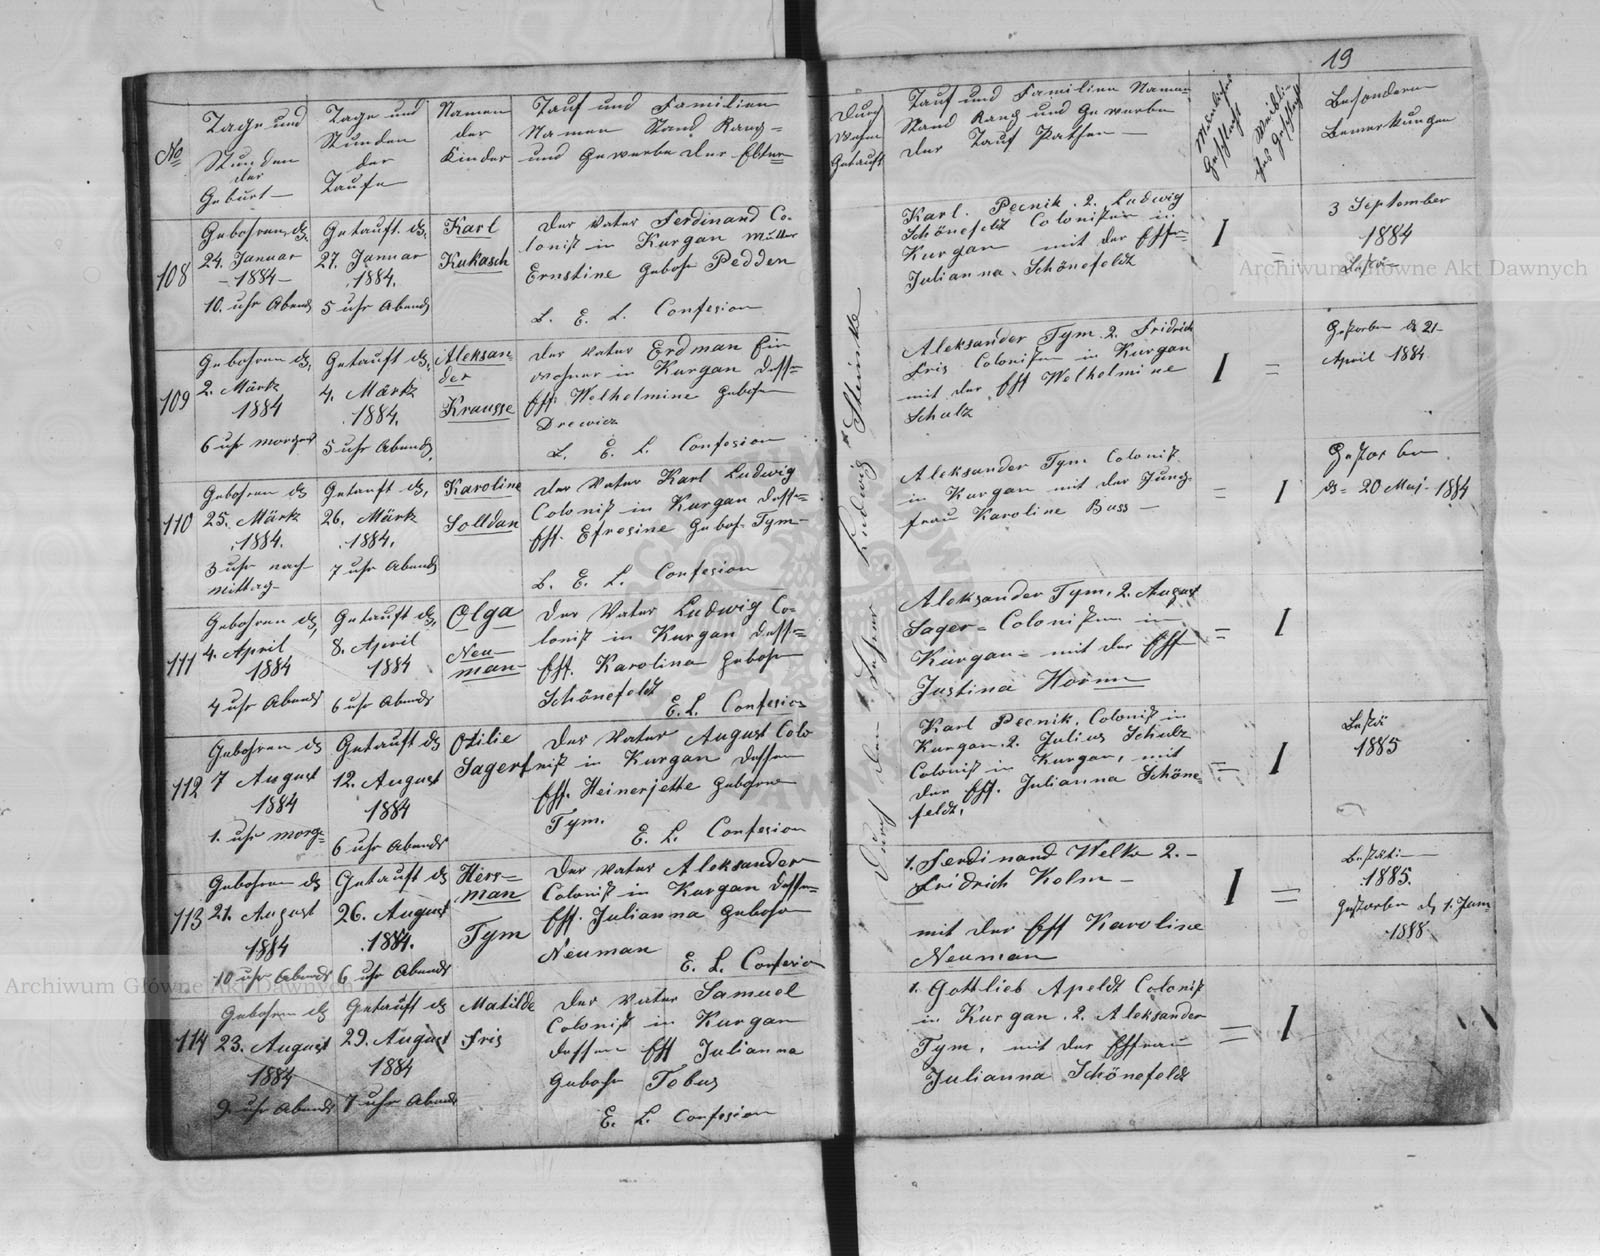 19
No
Tage und
Stunden
der
Geburt
Tage und
Stunden
der
Taufe
Namen
der
Kinder
Tauf und Familien
Namen Stand Rang
und Gewerbe der Eltern
Durch
wehm
Getauft
Tauf und Familien Namen
Stand Rang und Gewerbe
der Tauf Pathen
Männliches
Geschlecht
Weibli-
ches Geschlecht
Besondere
Bemerkungen
108
Gebohren d.
24. Januar
1884
10. uhr Abends
Getauft d.
27. Januar
1884.
5 uhr Abends
Karl
Kukasch
der Vater Ferdinand Co-
lonist in Kurgan Mutter
Ernstine Gebohr Pedden
L. E. L. Confesion
Karl Pecnik. 2. Ludwig
Schönefeldt Colonisten in
Kurgan mit der Ehfr
Julianna Schönefeldt
I =
3 September
1884
109
Gebohren d.
2. Märtz
1884
6 uhr morgens
Getauft d.
4. Märtz
1884.
5 uhr Abends,
Aleksan-
der
Krausse
der Vater Erdman Ein
wohner in Kurgan dess=
Ehf. Welhelmine Gebohr
Drewicz
L. E. L. Confesion
Aleksander Tym 2. Fridrich
Fris Colonisten in Kurgan
mit der Ehf Welhelmine
Schulz
I =
Gestorben d 21
April 1884
110
Gebohren d
25. Märtz
1884.
3 uhr nach
mittag
Getauft d,
26. Märtz
1884.
7 uhr Abends
Karoline
Solldan
der Vater Karl Ludwig
Colonist in Kurgan dess=
Ehf. Efresine Geboh. Tym
L. E. L. Confesion
Aleksander Tym Colonist
in Kurgan mit der Jung
frau Karoline Buss
= I
Gestorben
d= 20 Maj 1884
111
Gebohren d,
4. April
1884
4 uhr Abends
Getauft d,
8. April
1884
6 uhr Abends
Olga
Neu-
man
der Vater Ludwig Co-
lonist in Kurgan dess=
Ehf. Karolina Gebohr
Schönefeldt
E. L. Confesion
Aleksander Tym, 2. August
Sager = Colonisten in
Kurgan = mit der Ehf
Justina Hornn
= I
112
Gebohren d
7 August
1884
1. uhr morg=
Getauft d
12. August
1884
6 uhr Abends
Otilie
Sagert
der Vater August Colo
nist in Kurgan dessen
Ehf. Heinerjette Gebohrne
Tym.
E. L. Confesion
Karl Pecnik, Colonist in
Kurgan. 2. Julius Schulz
Colonist in Kurgan, mit
der Ehf. Julianna Schöne-
feldt,
= I
1885
113
Gebohren d
21. August
1884
10 uhr Abends
Getauft d
26. August
1884.
6 uhr Abends
Herr=
man
Tym
der Vater Aleksander
Colonist in Kurgan dessen
Ehf. Julianna Gebohr
Neuman
E. L. Confesion
1. Ferdinand Welke 2.
Fridrich Kolm
mit der Ehf Karoline
Neuman
I =
1885.
Gestorben d 1. Juni
1888
114
Gebohren d
23. August
1884
9. uhr Abends
Getauft d
29. August
1884
7 uhr Abends
Matilde
Fris
der Vater Samuel
Colonist in Kurgan
dessen Ehf Julianna
Gebohr Tobus
E. L. Confesion
1. Gottlieb Apeldt Colonist
in Kurgan. 2. Aleksander
Tym, mit der Ehfrau
Julianna Schönefeldt
= I
Durch den Lehrer Ludwig Steinke
Archiwum Główne Akt Dawnych
Archiwum Główne Akt Dawnych